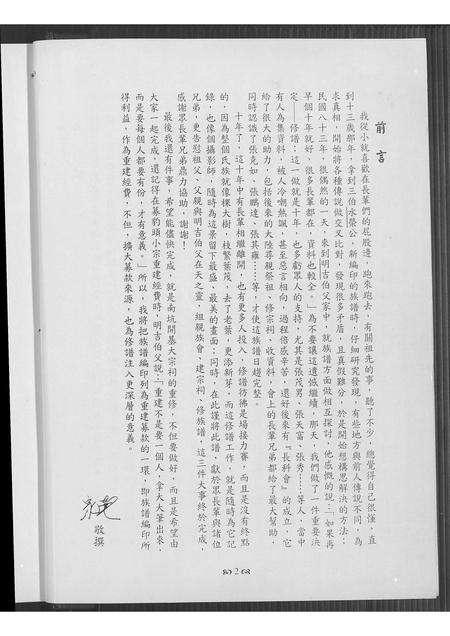 前言
我從小就喜歡在長輩們的屁股邊，跑來跑去，有關祖先的事，聽了不少，總覺得自己很懂，直
到十三歲那年，拿到三伯水榮公，新編印的族譜時，仔細研究發現，有些地方與前人傳說不同，為
求真相，開始將各種傳說做交叉比對，發現很多矛盾，且真假難分，於是開始想構思解決的方法；
民國八十三年，很偶然的一天，來到明吉伯父家中，就族譜方面做相互探討，他感慨的說：「如果再
早個十年就好，很多長輩都在，資料也較全。」為不要讓這遺憾繼續，那天，我們做了一件重要決
定——修譜；這一做就是十年，也多虧眾人的支持，尤其是張茂男、張天富、張秀……等人，當中
有人為集資料，被人冷嘲熱諷，甚至惡言相向，過程倍感辛苦，還好後來有『長科會』的成立，它
給了很大的助力，包括後來的大陸尋親祭祖、修宗祠、收資料，會上的長輩兄弟都給了最大幫助，
同時認識了張克如、張鵬達、張其雍……等，才使這族譜日趨完整。
十年了，這十年中有長輩相繼離開，也有更多人投入，修譜彷彿是場接力賽，而且是沒有終點
的，因為整個氏族就像棵大樹，枝繁葉茂，去了老葉，更添新芽，而這修譜工作，就是隨時為它記
錄，也像個攝影師，隨時為這景留下最盛、最美的畫面；同時，在此謹將此譜，獻於眾長輩與諸位
兄弟，更告慰祖父、父親與明吉伯父在天之靈，組親族會，建宗祠、修族譜，這三件大事終於完成，
感謝眾長輩兄弟鼎力協助，謝謝！
最後我還有件事，希望能儘快完成，就是南坑開基大宗祠的重修，不但要做好，而且是希望由
大家一起完成，還記得在募豹頭小宗重建經費時，明吉伯父說：「重建不是要一個人，拿大大筆出來，
而是要每個人都要有份，才有意義。」所以，我將把族譜編印列為重建募款的一環，即族譜編印所
得利益，作為重建經費，不但，擴大募款來源，也為修譜注入更深層的意義。
敬撰
2